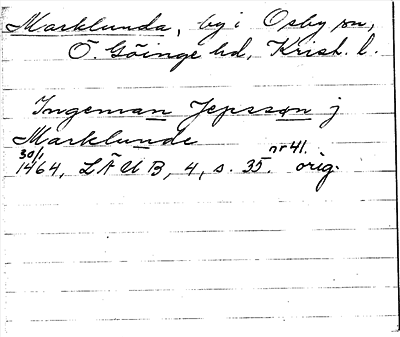 Marklunda, by i Osby sn,
Ö. Göinge hd, Krist. l.
Ingeman Jepsson j
Marklunde
30/1 1464, LÄUB, 4, s. 35. nr 41. orig.